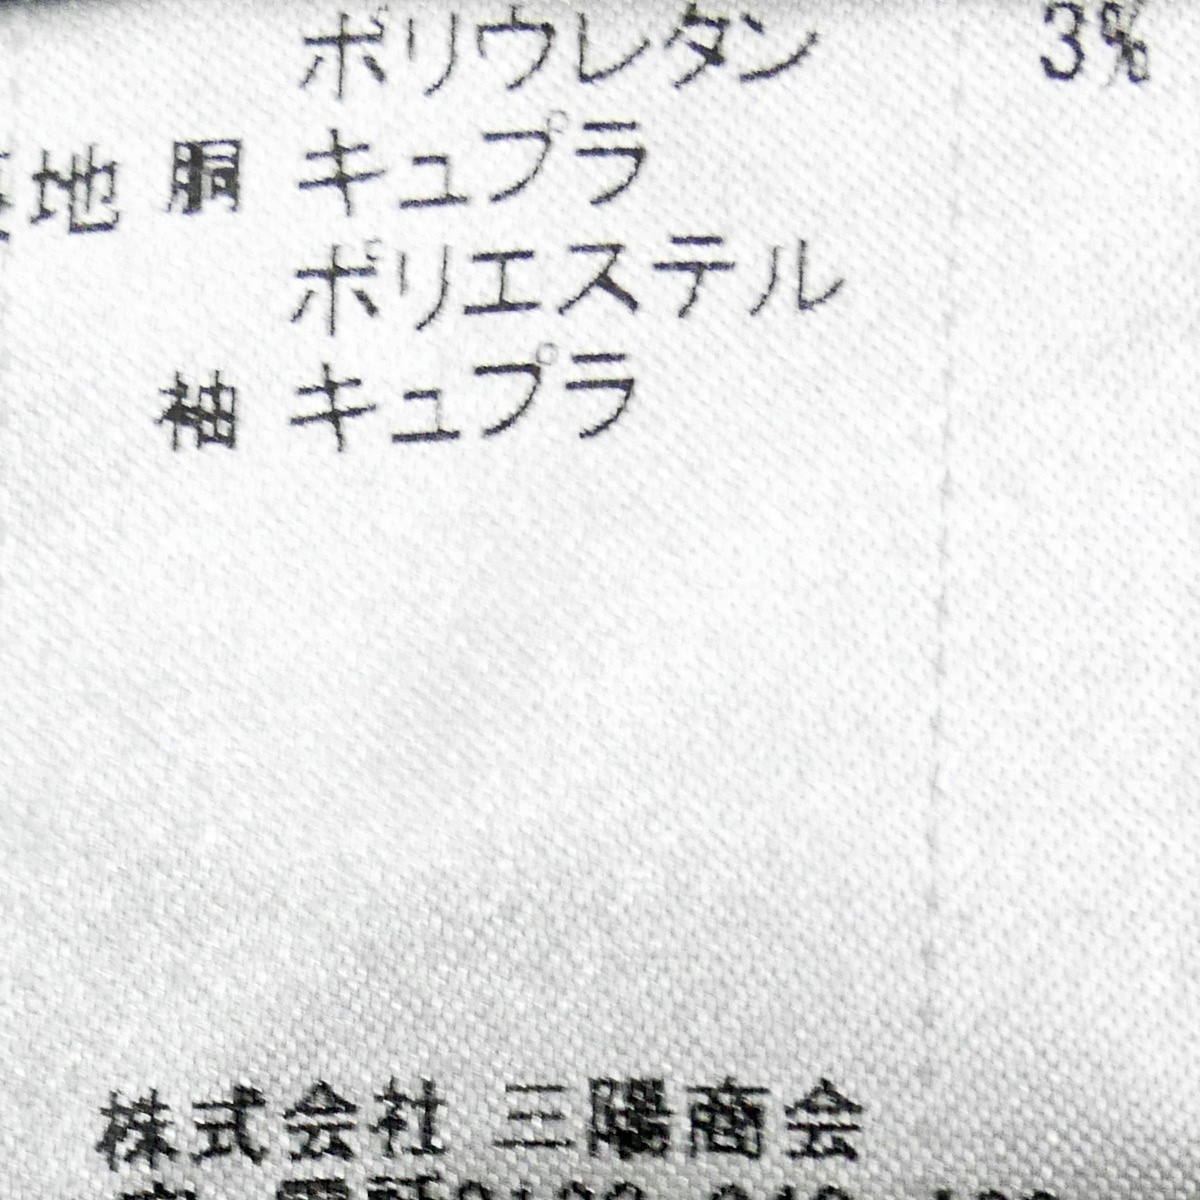 ポリウレタン 3%
地 胴 キュプラ
ポリエステル
袖 キュプラ
株式会社 三陽商会